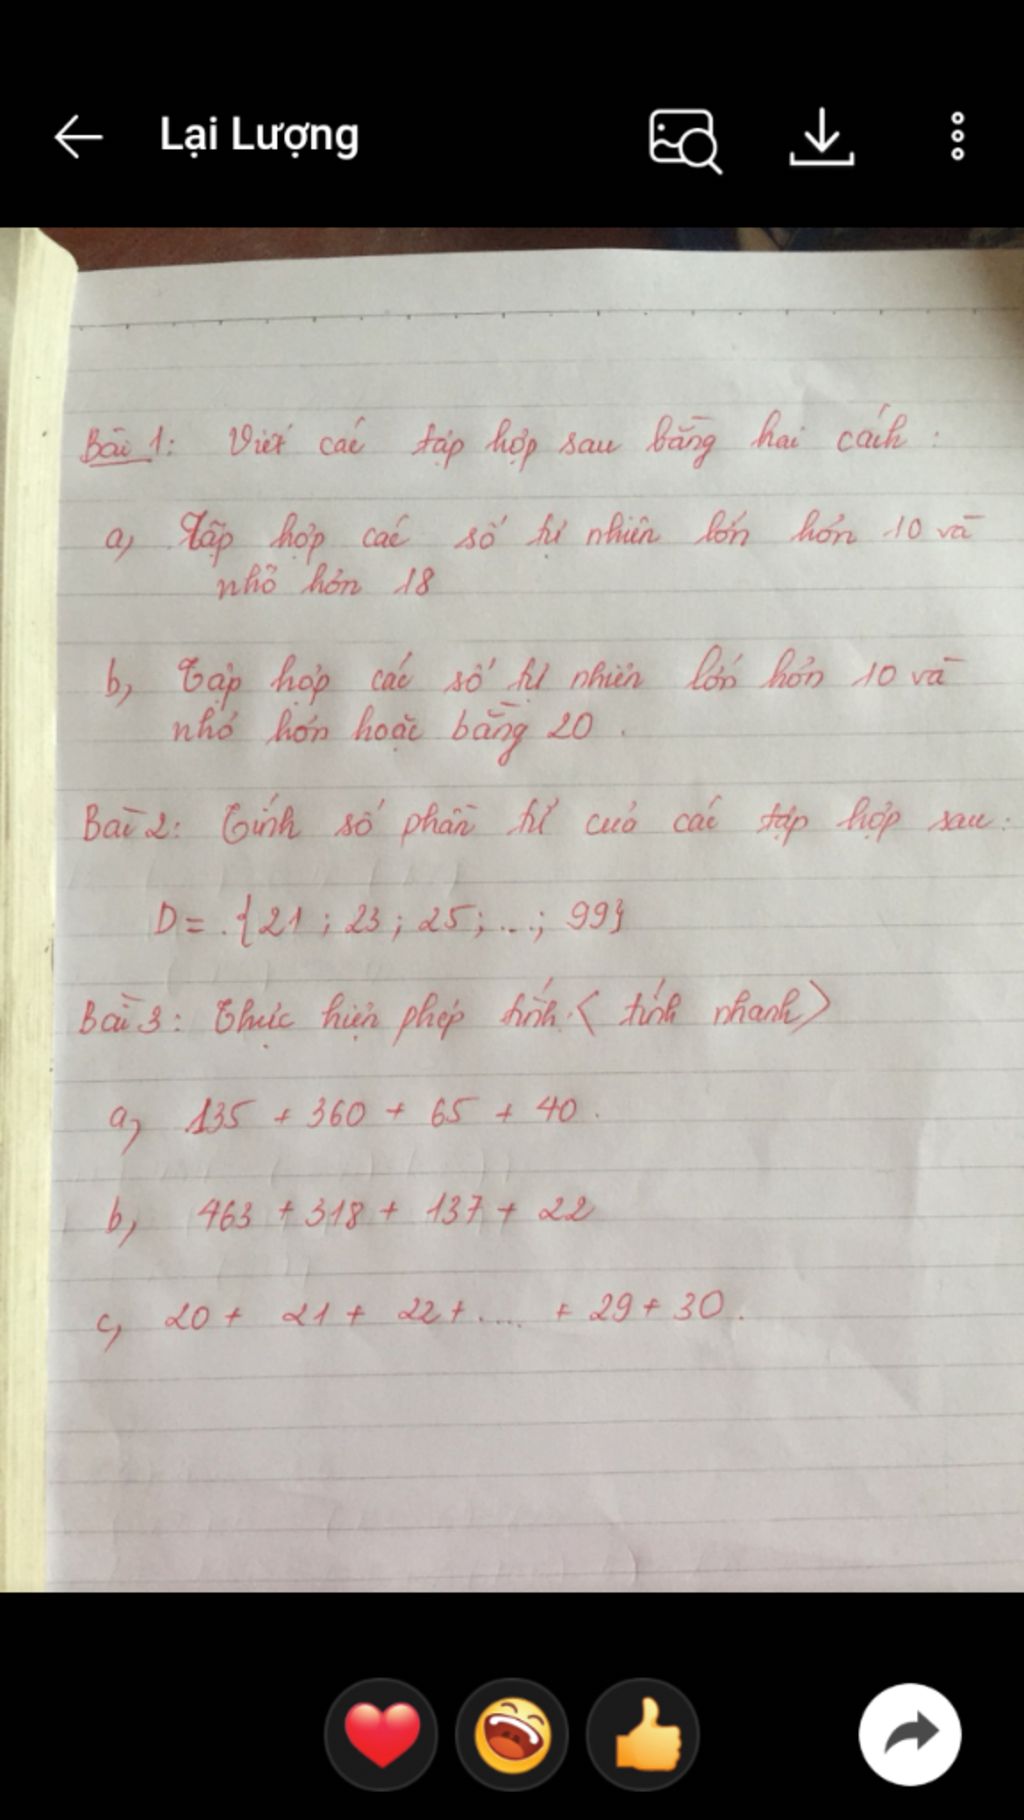 Lại Lượng
Bài 1: Viết các tập hợp sau bằng hai cách :
a, Tập hợp các số tự nhiên lớn hơn 10 và
nhỏ hơn 18
b, Tập hợp các số tự nhiên lớn hơn 10 và
nhỏ hơn hoặc bằng 20 .
Bài 2: Tính số phần tử của các tập hợp sau :
D = . {21 ; 23 ; 25 ; ... ; 99}
Bài 3 : Thực hiện phép tính . < tính nhanh >
a, 135 + 360 + 65 + 40 .
b, 463 + 318 + 137 + 22
c, 20 + 21 + 22 + ..... + 29 + 30 .